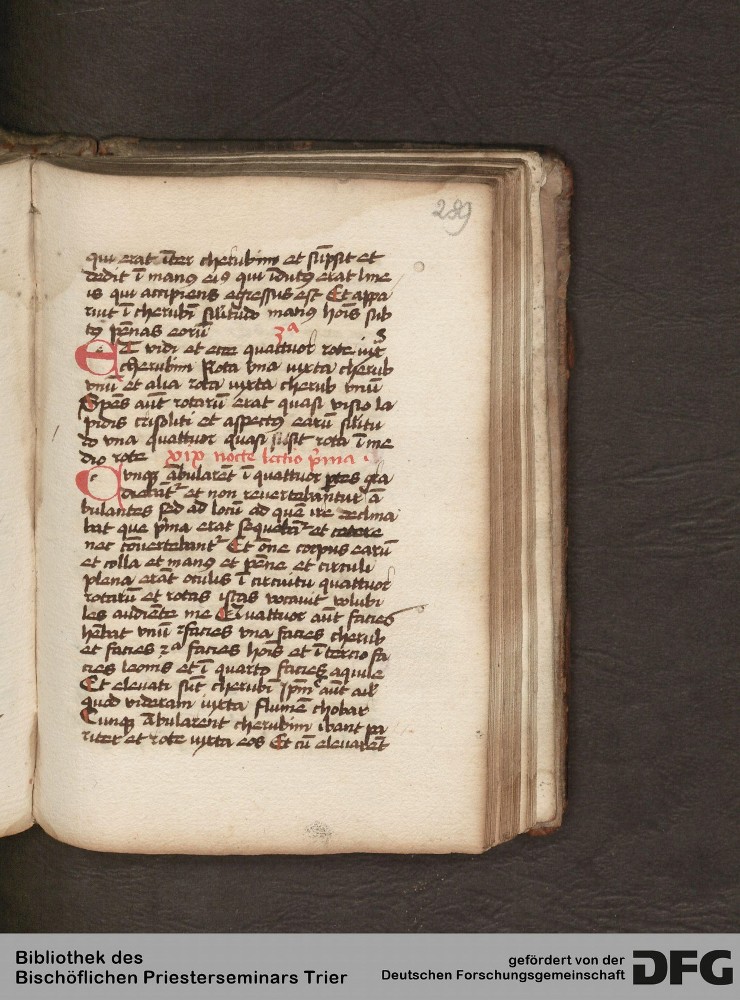 289
qui erat īter cherubim et sūpsit et
dedit ī manꝰ eiꝰ qui īdutꝰ erat line
is qui accipiens egressus est Et appa
ruit ī cherubī silitudo manꝰ hoīs sub
tꝰ pēnas eorū 3ᵃ
Et vidi et ecce quattuor rote iux
cherubim Rota vna iuxta cherub
vnū et alia rota iuxta cherub vnū
Spēs aūt rotarū erat quasi visio la
pidis crisoliti et aspectꝰ earū silitu
do vna quattuor quasi sit rota ī me
dio rote xix nocte lectio pīma
Cunqꝫ ābularēt ī quattuor ptes gra
diebāt᷑ et non revertebantur ā
bulantes sed ad locū ad quē ire declina
bat que pīma erat sequebāt᷑ et cetere
nec cōvertebant᷑ Et ōne corpus earū
et colla et manꝰ et pēne et circuli
plena erāt oculis ī circuitu quattuor
rotarū et rotas istas vocauit volubi
les audiēte me Quattuor aūt facies
hēbat vnū facies vna facies cherub
et facies 2ᵃ facies hoīs et ī tercio fa
cies leonis et ī quarto facies aquile
Et eleuati sūt cherubī ipm̄ aūt aīal
quod videram iuxta flumē chobar
Cunqꝫ ābularent cherubim ibant pa
riter et rote iuxta eos Et cū eleuarēt
Bibliothek des
Bischöflichen Priesterseminars Trier
gefördert von der
Deutschen Forschungsgemeinschaft
DFG